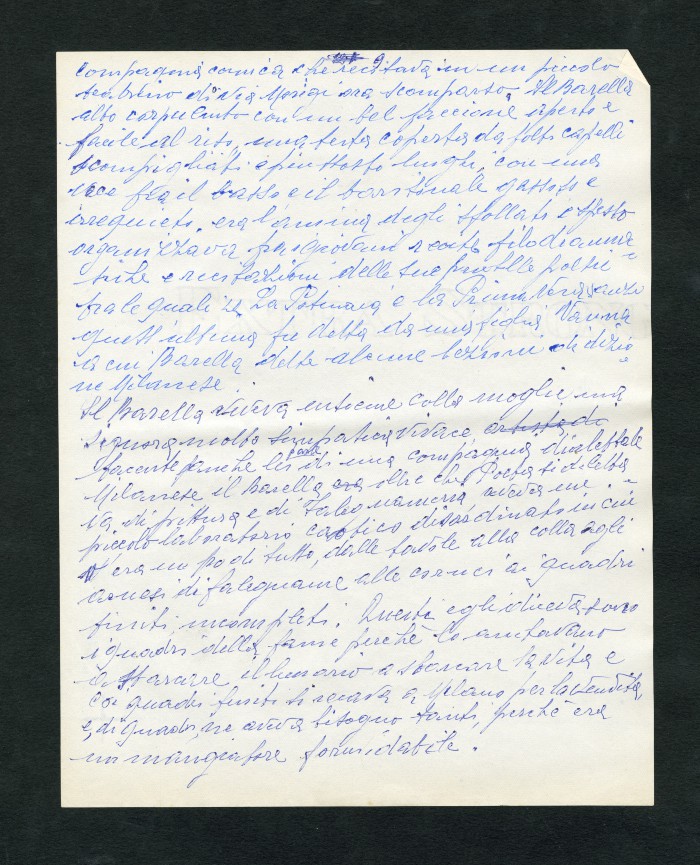 9
compagnia comica che recitava in un piccolo
teatrino di via Morigi era scomparso. Il Barella
alto corpulento con un bel faccione aperto e
facile al riso, una testa coperta da folti capelli
scompigliati e piuttosto lunghi, con una
voce fra il basso e il baritonale gassoso e
irrequieto, era l'anima degli sfollati e spesso
organizzava fra i giovani recite filodramma=
tiche e recitazioni delle sue poesie
fra le quali La Pütinaia e la Primavera anzi
quest'ultima fu detta da una figlia Vanna
a cui Barella dette alcune lezioni di dizio=
ne Milanese.
Il Barella viveva insieme colla moglie una
signora molto simpatica vivace artista di
facente parte anche lei di una compagnia dialettale
Milanese il Barella era oltre che Poeta si diletta=
va di pittura e di falegnameria aveva un
piccolo laboratorio caotico disordinato in cui
v'era un po di tutto, dalle tavole alla colla agli
arnesi di falegname alle cornici ai quadri
finiti incompleti. Questi egli diceva sono
i quadri della fame perchè lo aiutavano
a sbarcare il lunario a sbarcare la vita e
coi quadri finiti si recava a Milano per la vendita
e, di quadri, ne aveva bisogno tanti, perchè era
un mangiatore formidabile.